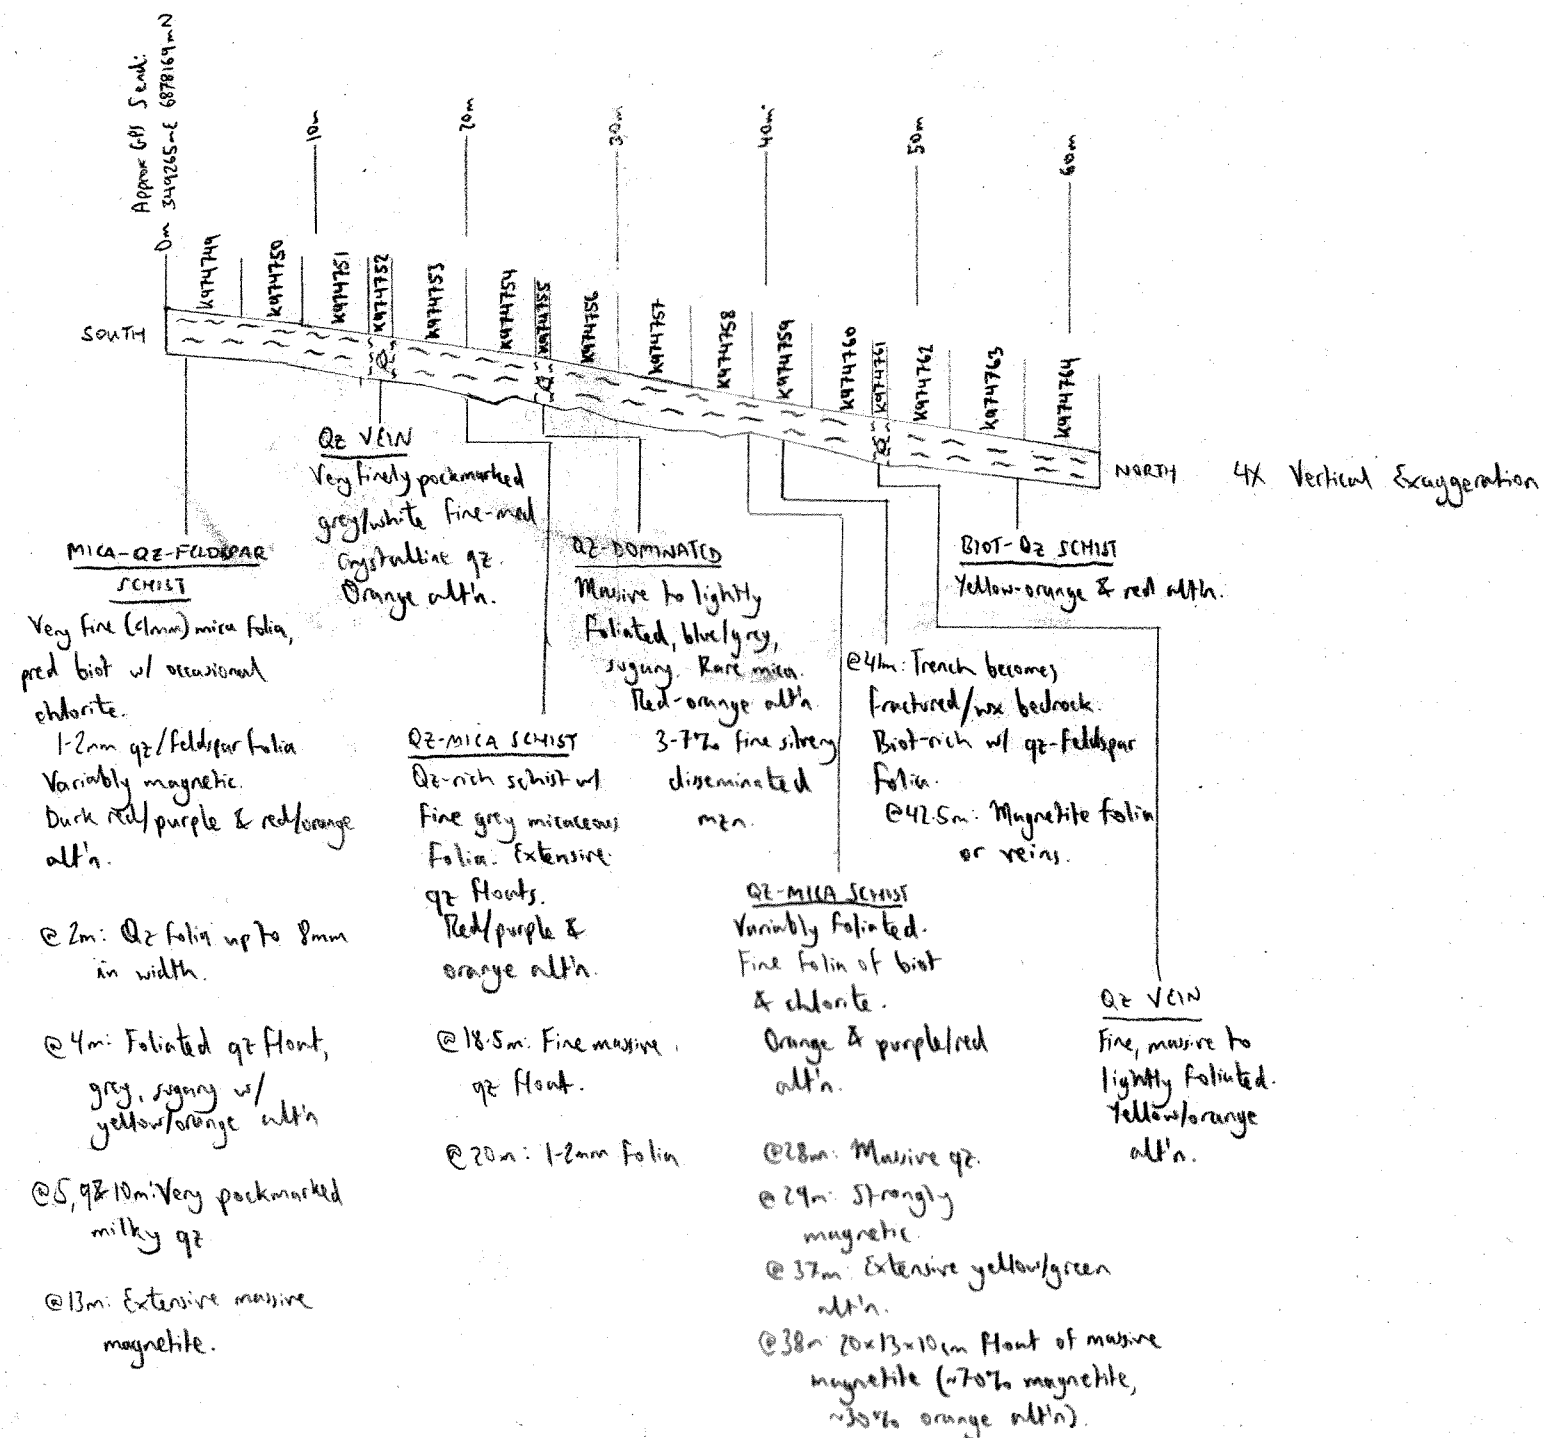 Approx GPS Send:
0m 349265mE 6878169mN
10m
20m
30m
40m
50m
60m
K974749
K974750
K974751
K974752
K974753
K974754
K974755
K974756
K974757
K974758
K974759
K974760
K974761
K974762
K974763
K974764
SOUTH
Q
Q
Q
NORTH
4X Vertical Exaggeration
MICA-QZ-FELDSPAR
SCHIST
Very fine (<1mm) mica folia,
pred biot w/ occasional
chlorite.
1-2mm qz/feldspar folia
Variably magnetic.
Dark red/purple & red/orange
alt'n.
@ 2m: Qz folia up to 8mm
in width.
@ 4m: Foliated qz float,
grey, sugary w/
yellow/orange alt'n
@ 5, 9 & 10m: Very pockmarked
milky qz
@ 13m: Extensive massive
magnetite.
QZ VEIN
Very finely pockmarked
grey/white fine-med
crystalline qz.
Orange alt'n.
QZ-MICA SCHIST
Qz-rich schist w/
fine grey micaceous
folia. Extensive
qz floats.
Red/purple &
orange alt'n.
@ 18.5m: Fine massive
qz float.
@ 20m: 1-2mm folia
QZ-DOMINATED
Massive to lightly
foliated, blue/grey,
sugary. Rare mica.
Red-orange alt'n
3-7% fine silvery
disseminated
mzn.
QZ-MICA SCHIST
Variably foliated.
Fine folia of biot
& chlorite.
Orange & purple/red
alt'n.
@ 28m: Massive qz.
@ 29m: Strongly
magnetic.
@ 37m: Extensive yellow/green
alt'n.
@ 38m 20x13x10cm float of massive
magnetite (~70% magnetite,
~30% orange alt'n).
@ 41m: Trench becomes
fractured/wx bedrock.
Biot-rich w/ qz-feldspar
folia.
@ 42.5m: Magnetite folia
or veins.
BIOT-QZ SCHIST
Yellow-orange & red alt'n.
QZ VEIN
Fine, massive to
lightly foliated.
Yellow/orange
alt'n.